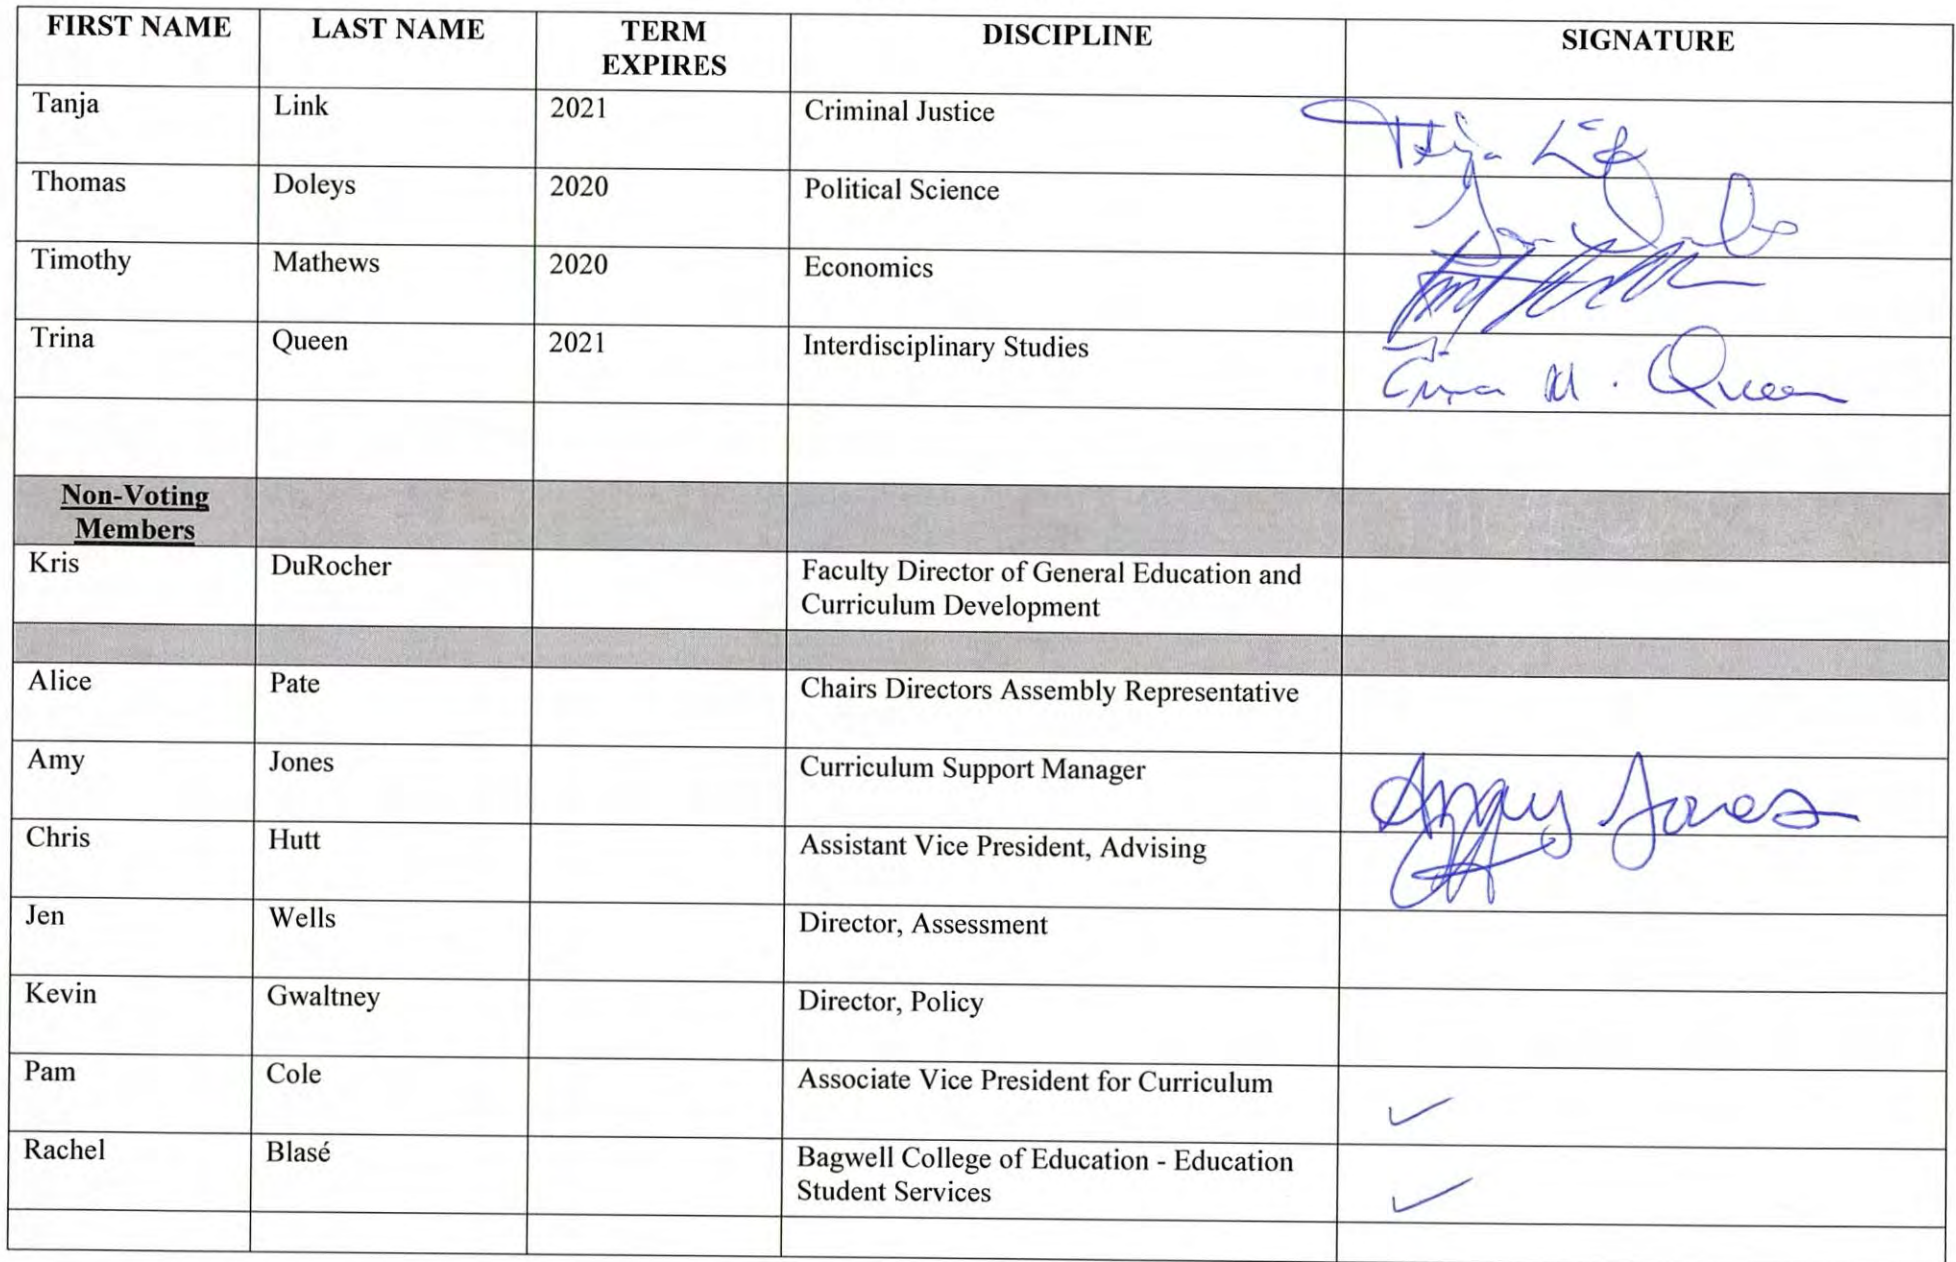 FIRST NAME LAST NAME TERM EXPIRES DISCIPLINE SIGNATURE
Tanja Link 2021 Criminal Justice
Thomas Doleys 2020 Political Science
Timothy Mathews 2020 Economics
Trina Queen 2021 Interdisciplinary Studies Trina M. Queen
Non-Voting
Members
Kris DuRocher Faculty Director of General Education and
Curriculum Development
Alice Pate Chairs Directors Assembly Representative
Amy Jones Curriculum Support Manager Amy Jones
Chris Hutt Assistant Vice President, Advising
Jen Wells Director, Assessment
Kevin Gwaltney Director, Policy
Pam Cole Associate Vice President for Curriculum ✓
Rachel Blasé Bagwell College of Education - Education
Student Services ✓